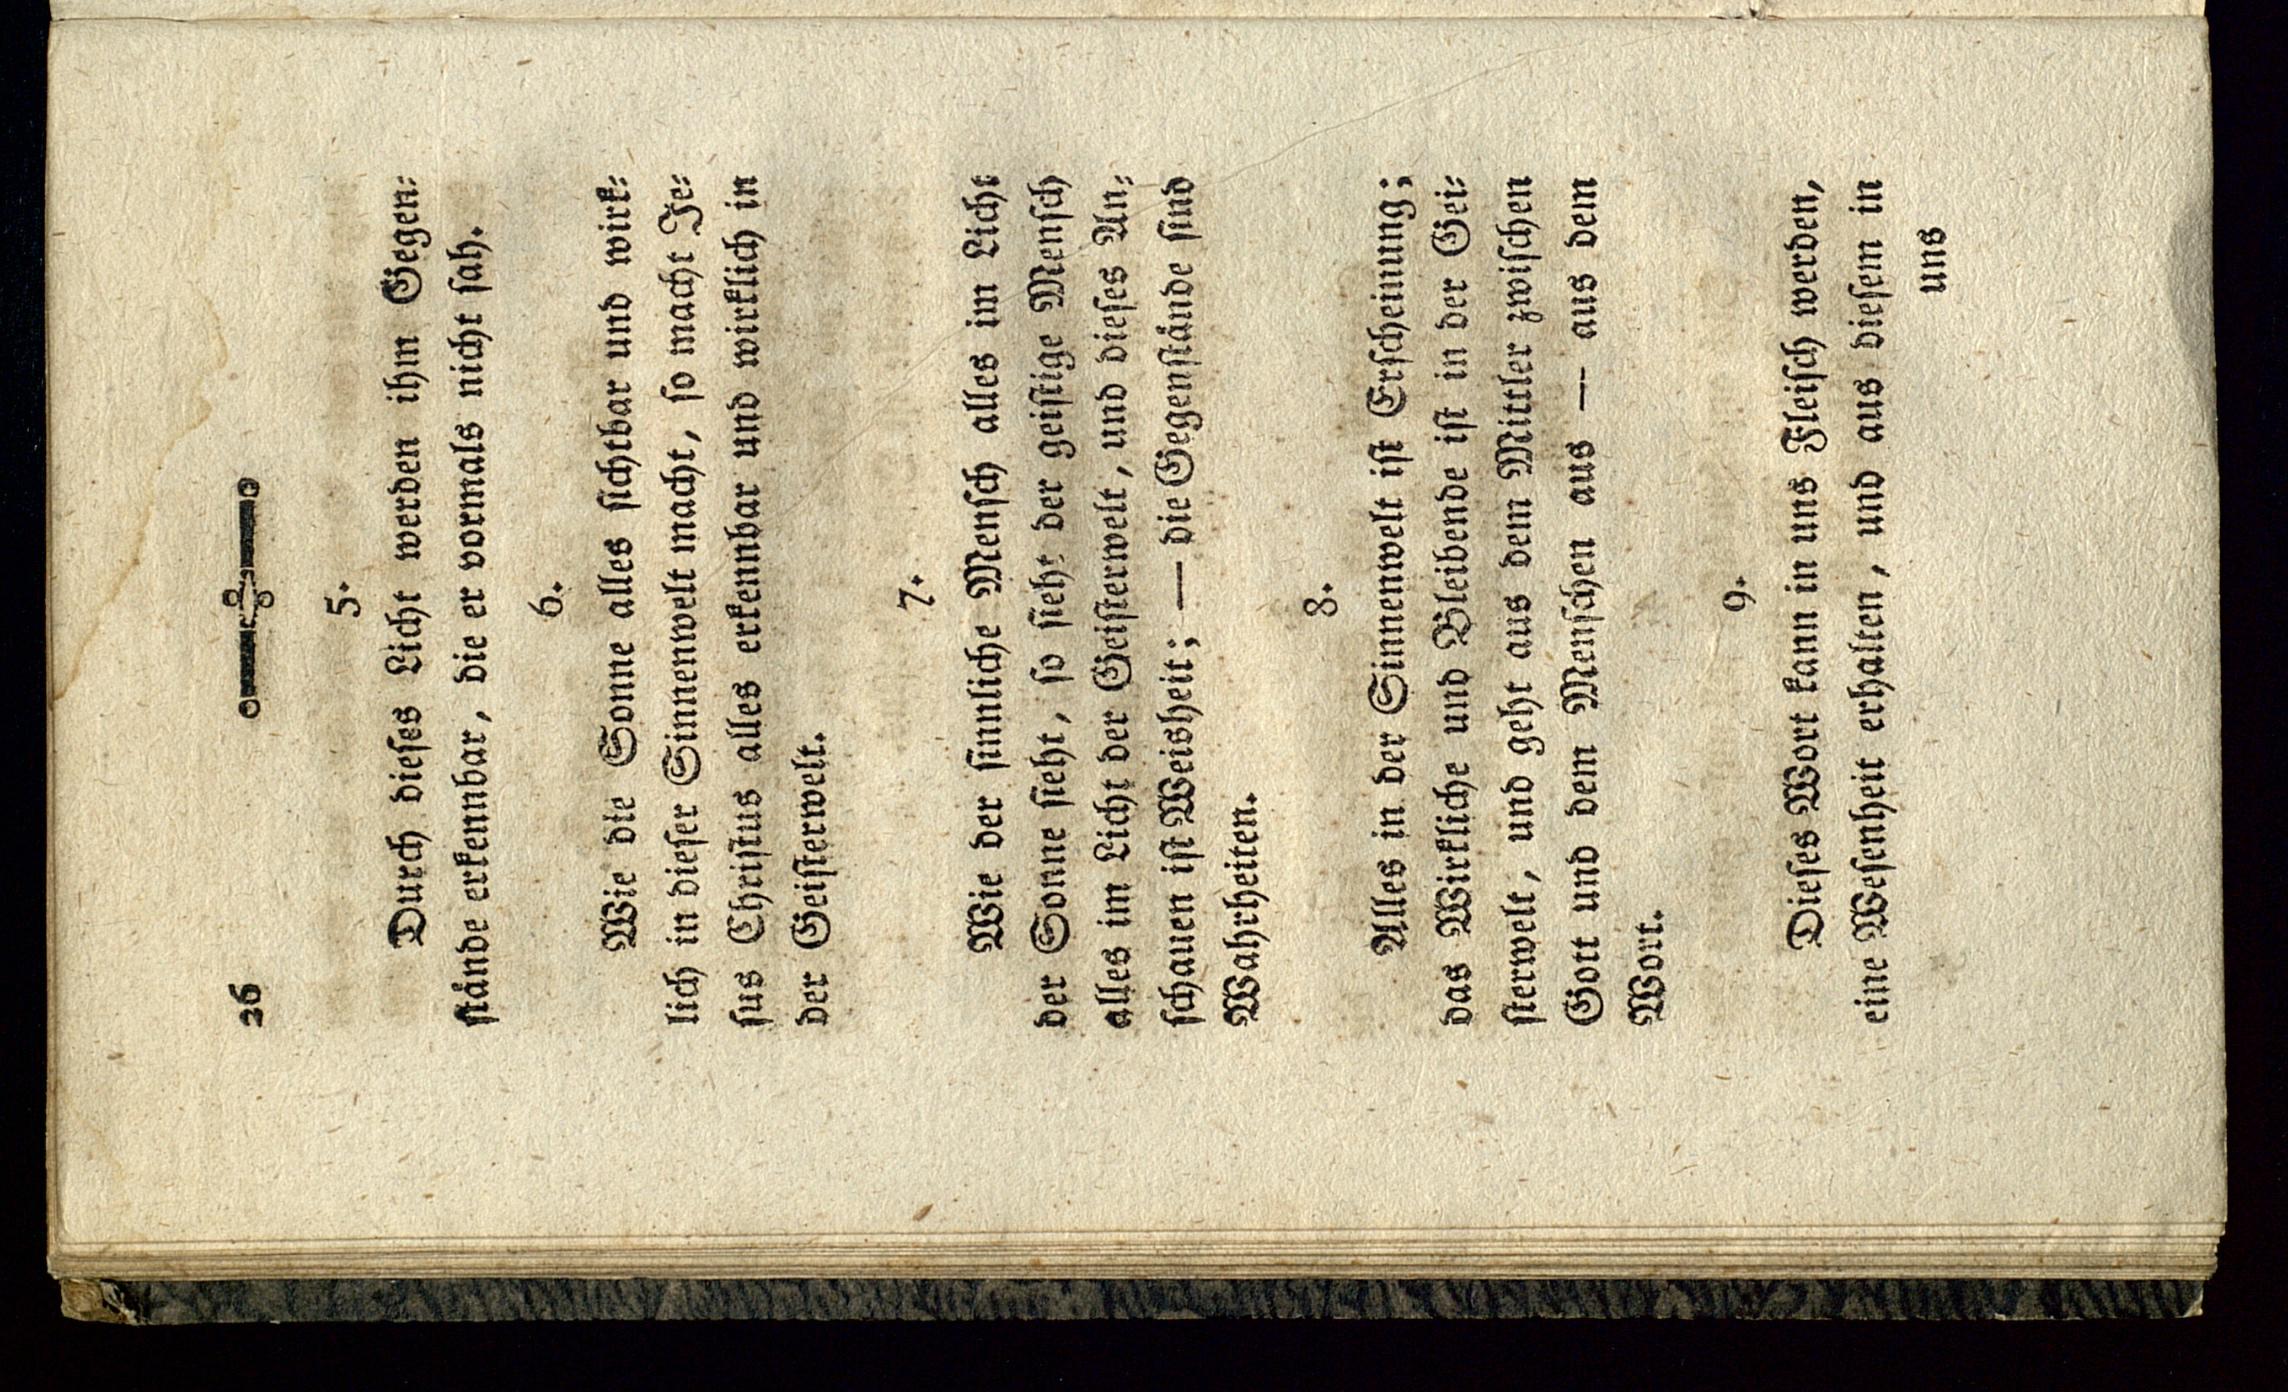 26
5.
Durch dieſes Licht werden ihm Gegen⸗
ſtånde erkennbar, die er vormals nicht ſah.
6.
Wie die Sonne alles ſichtbar und wirk⸗
lich in dieſer Sinnenwelt macht, ſo macht Je⸗
ſus Chriſtus alles erkennbar und wirklich in
der Geiſterwelt.
7.
Wie der ſinnliche Menſch alles im Licht
der Sonne ſieht, ſo ſieht der geiſtige Menſch
alles im Licht der Geiſterwelt, und dieſes An⸗
ſchauen iſt Weisheit; — die Gegenſtånde ſind
Wahrheiten.
8.
Alles in der Sinnenwelt iſt Erſcheinung;
das Wirkliche und Bleibende iſt in der Gei⸗
ſterwelt, und geht aus dem Mittler zwiſchen
Gott und dem Menſchen aus — aus dem
Wort.
9.
Dieſes Wort kann in uns Fleiſch werden,
eine Weſenheit erhalten, und aus dieſem in
uns